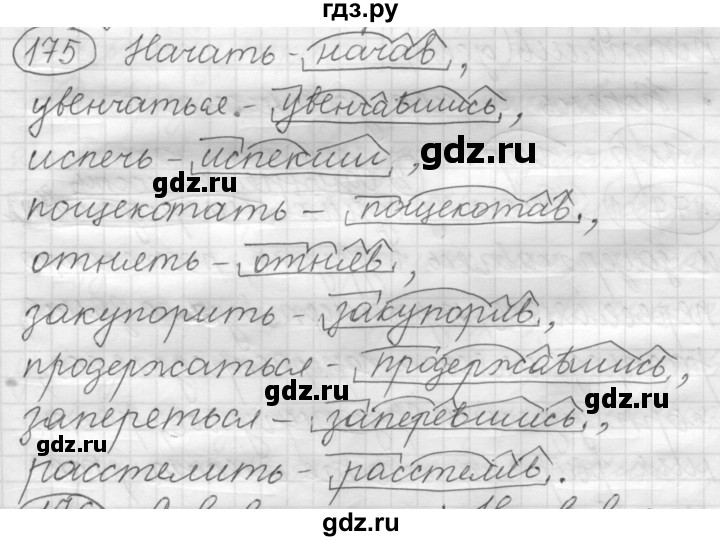 гдз.ру
175 Начать - начав,
увенчаться. - увенчавшись,
испечь - испекши,
gdz.ru
gdz.ru
пощекотать - пощекотав.,
отнять - отняв,
закупорить - закупорив,
продержаться - продержавшись,
gdz.ru
gdz.ru
запереться - заперевшись.,
gdz.ru
расстелить - расстелив.
gdz.ru